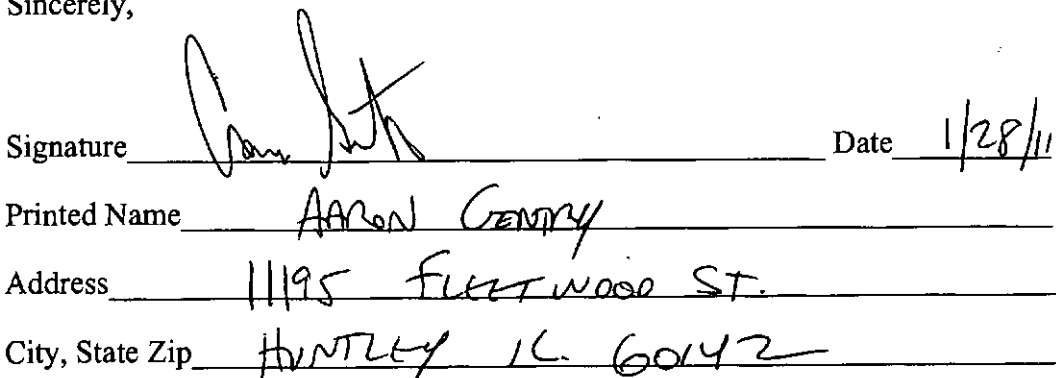 Sincerely,
Signature Date 1/28/11
Printed Name AARON GENTRY
Address 11195 FLEETWOOD ST.
City, State Zip HUNTLEY IL. 60142